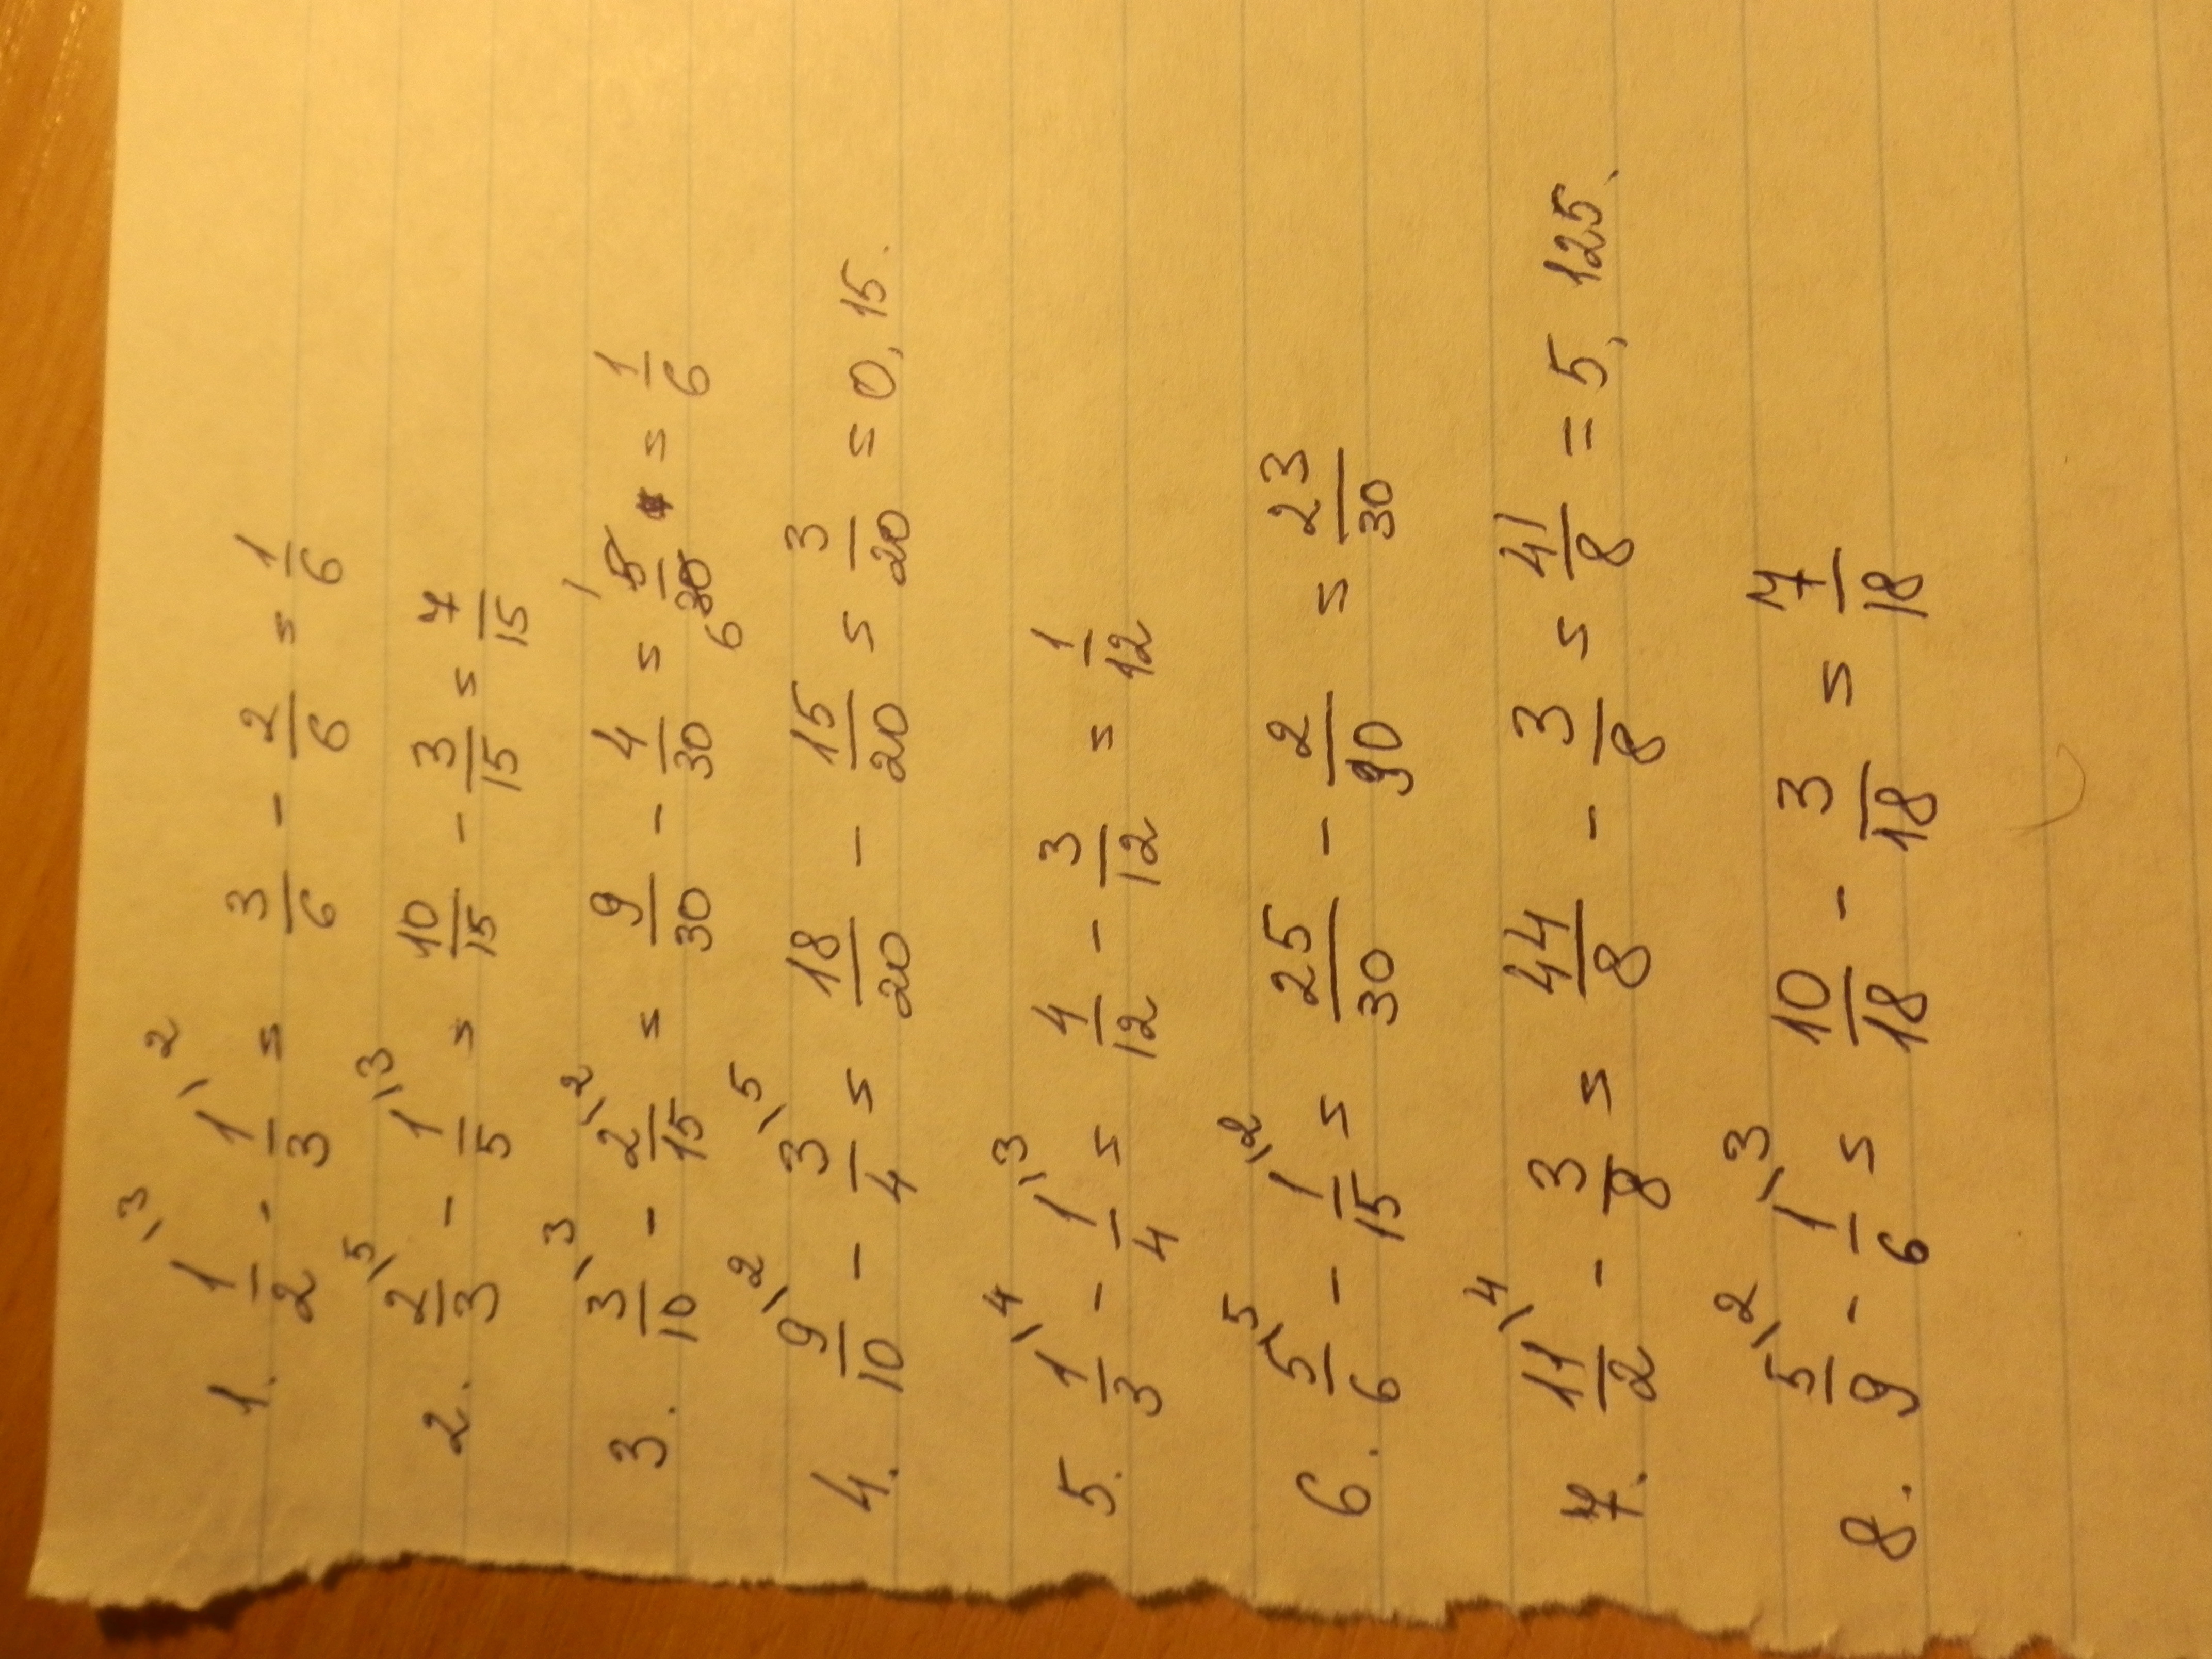 1. 1/2\3 - 1/3\2 = 3/6 - 2/6 = 1/6
2. 2/3\5 - 1/5\3 = 10/15 - 3/15 = 7/15
3. 3/10\3 - 2/15\2 = 9/30 - 4/30 = 5/30 1 6 = 1/6
4. 9/10\2 - 3/4\5 = 18/20 - 15/20 = 3/20 = 0,15.
5. 1/3\4 - 1/4\3 = 4/12 - 3/12 = 1/12
6. 5/6\5 - 1/15\2 = 25/30 - 2/30 = 23/30
7. 11/2\4 - 3/8 = 44/8 - 3/8 = 41/8 = 5,125.
8. 5/9\2 - 1/6\3 = 10/18 - 3/18 = 7/18